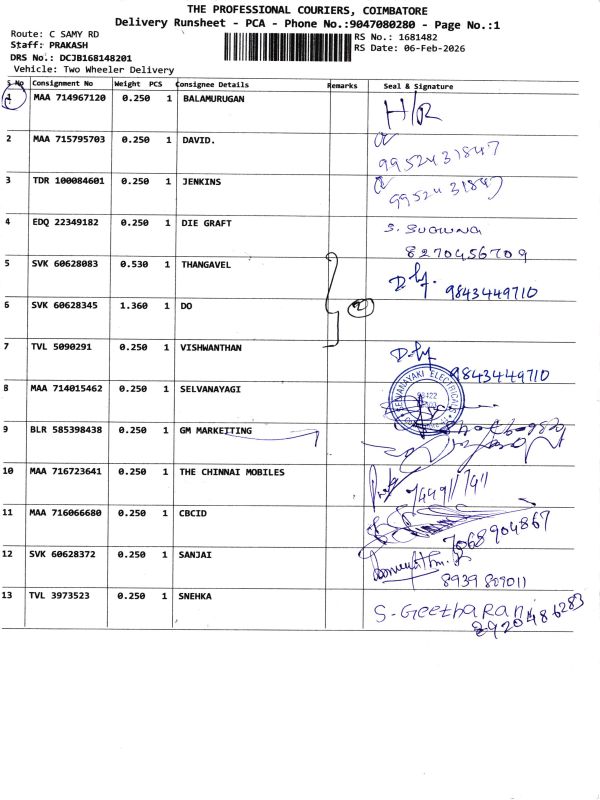 THE PROFESSIONAL COURIERS, COIMBATORE
Delivery Runsheet - PCA - Phone No.:9047080280 - Page No.:1
Route: C SAMY RD
RS No.: 1681482
Staff: PRAKASH
RS Date: 06-Feb-2026
DRS No.: DCJB168148201
Vehicle: Two Wheeler Delivery
S No Consignment No Weight PCS Consignee Details Remarks Seal & Signature
1 MAA 714967120 0.250 1 BALAMURUGAN H/R
2 MAA 715795703 0.250 1 DAVID. 9952431847
3 TDR 100084601 0.250 1 JENKINS 9952431847
4 EDQ 22349182 0.250 1 DIE GRAFT S.
8270456709
5 SVK 60628083 0.530 1 THANGAVEL 9843449710
6 SVK 60628345 1.360 1 DO 2
7 TVL 5090291 0.250 1 VISHWANTHAN 9843449710
8 MAA 714015462 0.250 1 SELVANAYAGI SELVANAYAKI ELECTRICALS
9 BLR 585398438 0.250 1 GM MARKEITING
10 MAA 716723641 0.250 1 THE CHINNAI MOBILES
11 MAA 716066680 0.250 1 CBCID 7068904867
12 SVK 60628372 0.250 1 SANJAI
8939809011
13 TVL 3973523 0.250 1 SNEHKA S. GeethaRani